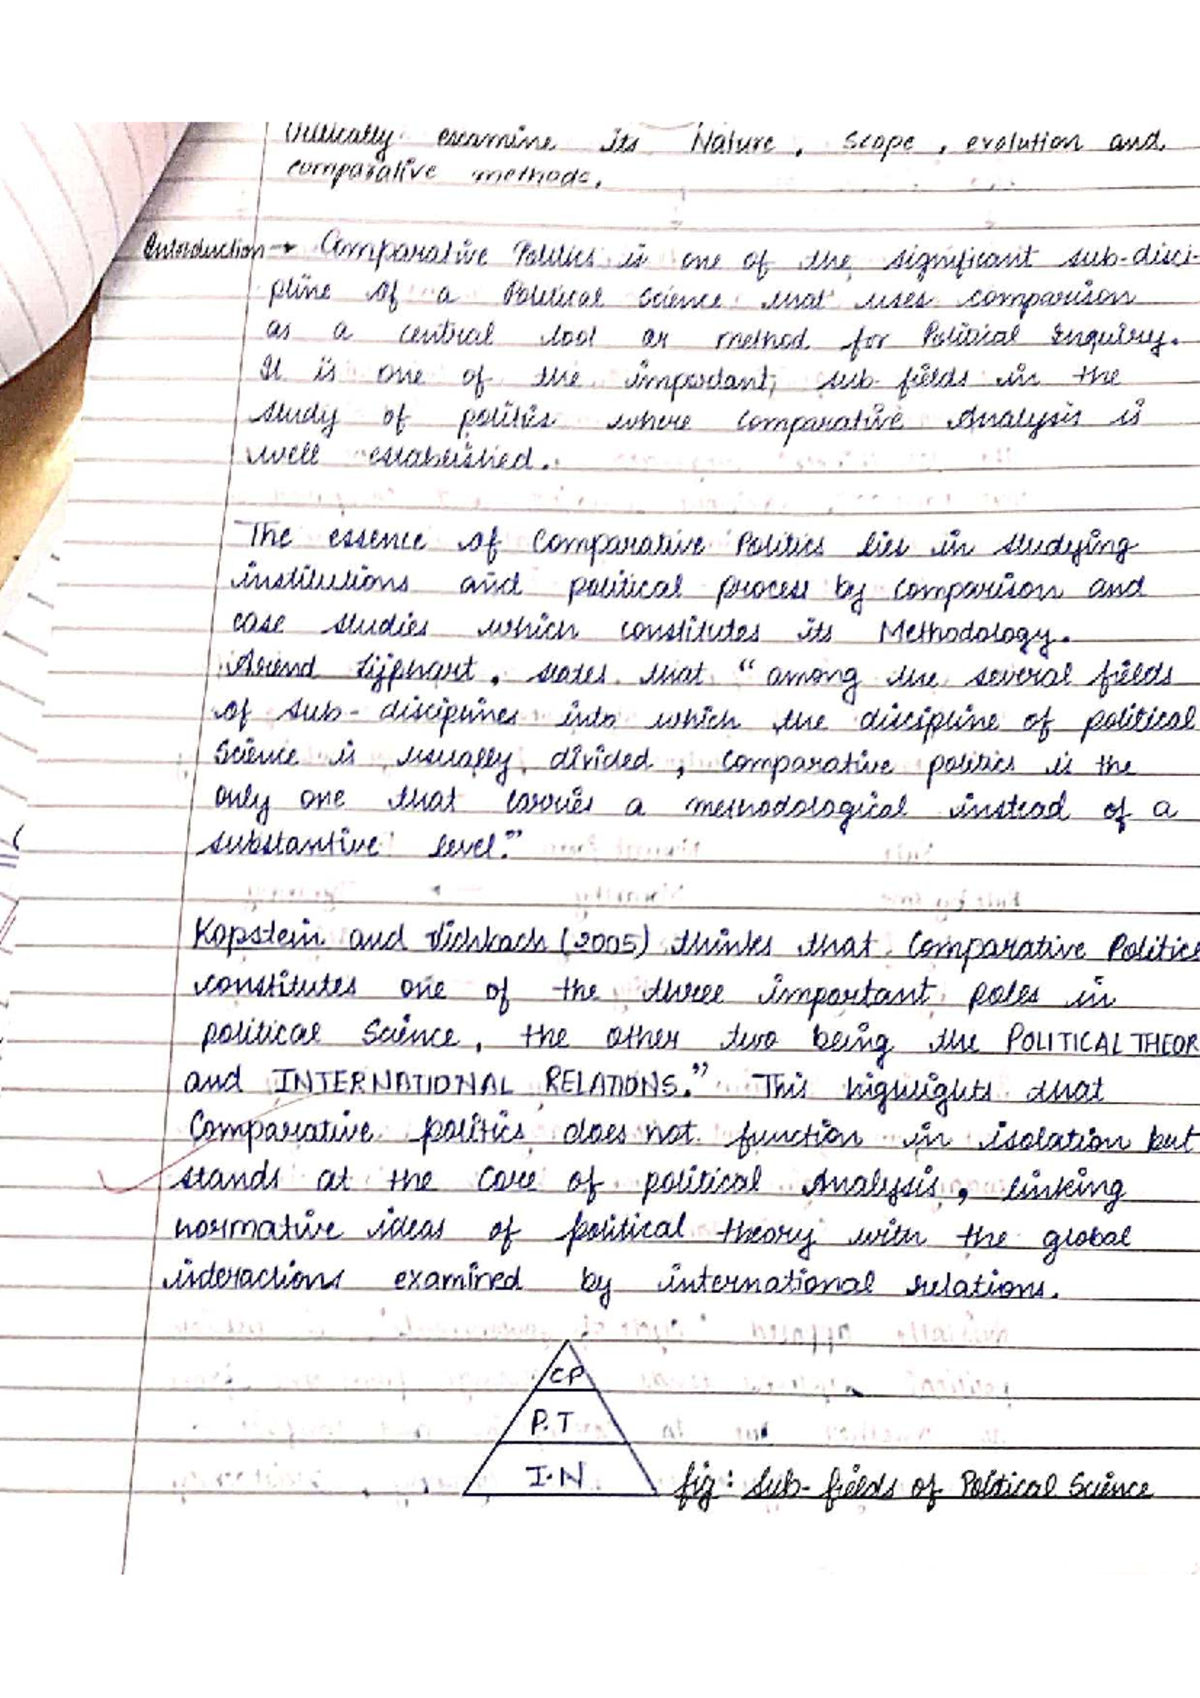 Critically examine its Nature, scope, evolution and
comparative methods.
Introduction → Comparative Politics is one of the significant sub-disci-
pline of a Political Science that uses comparison
as a central tool or method for Political Enquiry.
It is one of the important, sub-fields in the
study of politics where comparative Analysis is
well established.
The essence of Comparative Politics lies in studying
institutions and political process by comparison and
case studies which constitutes its Methodology.
Arend Lijphart, states that "among the several fields
of sub-disciplines into which the discipline of political
Science is usually divided, comparative politics is the
only one that carries a methodological instead of a
substantive level."
Kopstein and Lichbach (2005) thinks that Comparative Politics
constitutes one of the three important poles in
political Science, the other two being the POLITICAL THEOR
and INTERNATIONAL RELATIONS." This highlights that
Comparative politics does not function in isolation but
stands at the core of political Analysis, linking
normative ideas of political theory with the global
interactions examined by international relations.
CP
P.T
I.N
fig: Sub-fields of Political Science